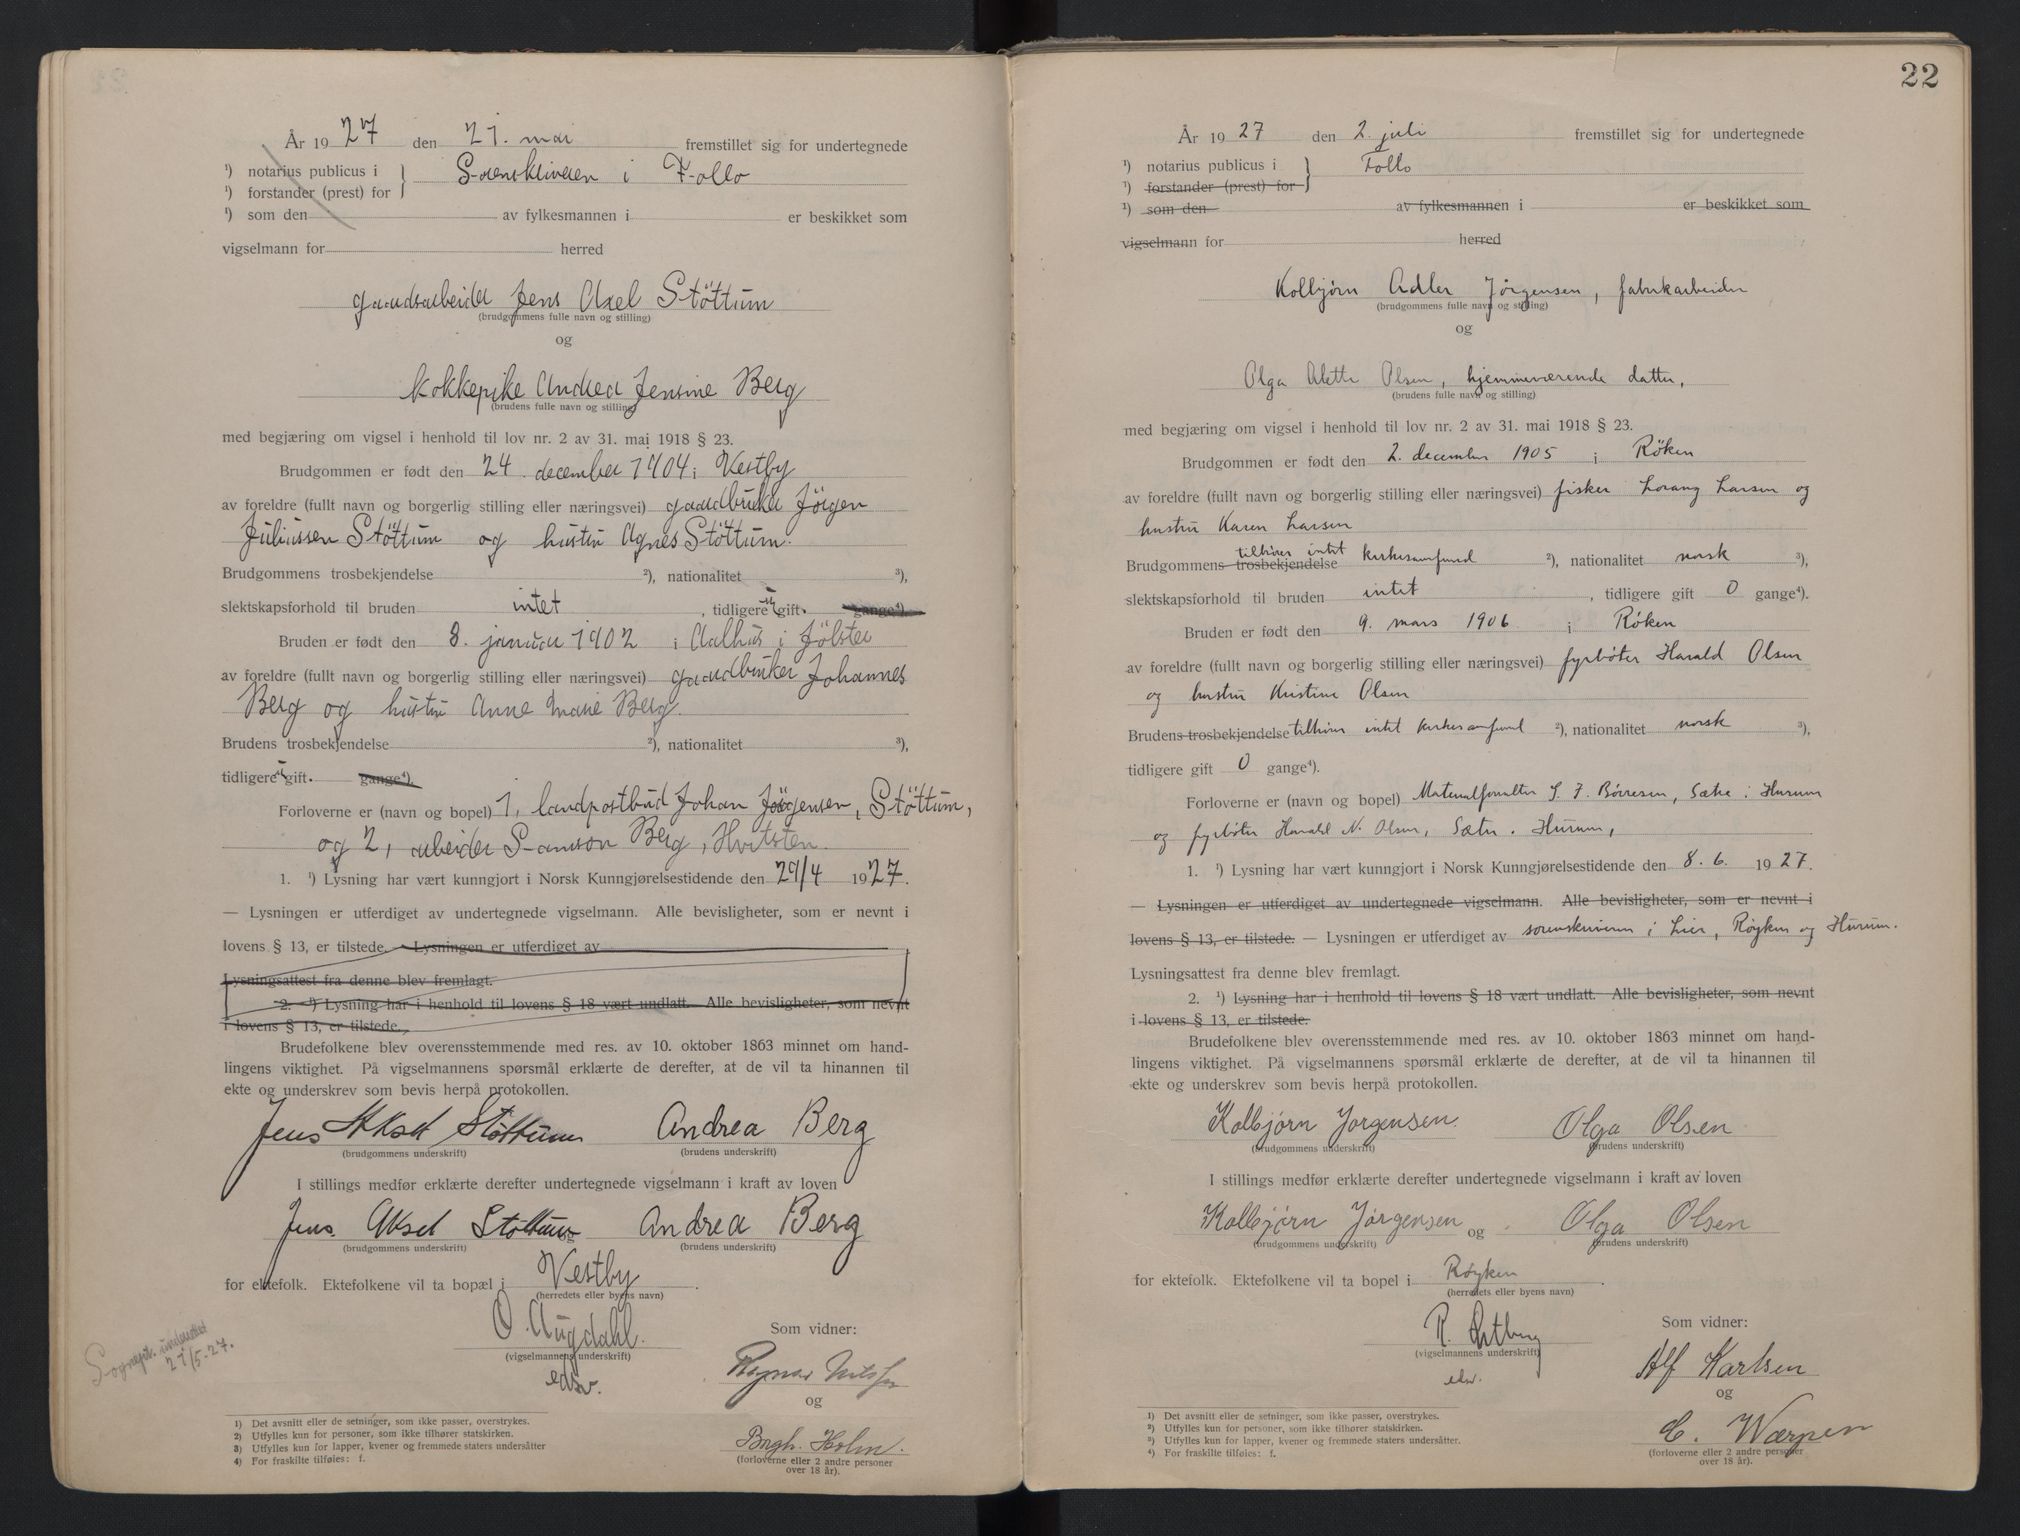 År 1927 den 21. mai fremstillet sig for undertegnede
¹) notarius publicus i } Sorenskriveren i Follo
¹) forstander (prest) for
¹) som den av fylkesmannen i er beskikket som
vigselmann for herred
gaardsarbeider Jens Axel Støttum
(brudgommens fulle navn og stilling)
og
kokkepike Andrea Jensine Berg
(brudens fulle navn og stilling)
med begjæring om vigsel i henhold til lov nr. 2 av 31. mai 1918 § 23.
Brudgommen er født den 24. december 1904 i Vestby
av foreldre (fullt navn og borgerlig stilling eller næringsvei) gaardbruker Jörgen
Juliussen Støttum og hustru Agnes Støttum.
Brudgommens trosbekjendelse ²), nationalitet ³),
slektskapsforhold til bruden intet, tidligere ei gift. gange⁴).
Bruden er født den 8. januar 1902 i Aalhus i Jölster
av foreldre (fullt navn og borgerlig stilling eller næringsvei) gaardbruker Johannes
Berg og hustru Anne Marie Berg.
Brudens trosbekjendelse ²), nationalitet ³),
tidligere ei gift. gange⁴).
Forloverne er (navn og bopel) 1, landpostbud Johan Jørgensen, Støttum,
og 2, arbeider Samson Berg, Hvitsten.
1. ¹) Lysning har vært kunngjort i Norsk Kunngjørelsestidende den 29/4 1927.
— Lysningen er utferdiget av undertegnede vigselmann. Alle bevisligheter, som er nevnt i
lovens § 13, er tilstede. — Lysningen er utferdiget av
Lysningsattest fra denne blev fremlagt.
2. ¹) Lysning har i henhold til lovens § 18 vært undlatt. Alle bevisligheter, som nevnt
i lovens § 13, er tilstede.
Brudefolkene blev overensstemmende med res. av 10. oktober 1863 minnet om hand-
lingens viktighet. På vigselmannens spørsmål erklærte de derefter, at de vil ta hinannen til
ekte og underskrev som bevis herpå protokollen.
Jens Aksel Støttum Andrea Berg
(brudgommens underskrift) (brudens underskrift)
I stillings medfør erklærte derefter undertegnede vigselmann i kraft av loven
Jens Aksel Støttum og Andrea Berg
(brudgommens underskrift) (brudens underskrift)
for ektefolk. Ektefolkene vil ta bopæl i Vestby.
(herredets eller byens navn)
O. Augdahl.
(vigselmannens underskrift)
edsv.
Som vidner:
Ragnar Nilsen
og
Borgh. Holm.
(forloverne eller 2 andre personer
over 18 år).
Sognepr. underrettet
21/5-27.
1) Det avsnitt eller de setninger, som ikke passer, overstrykes.
2) Utfylles kun for personer, som ikke tilhører statskirken.
3) Utfylles kun for lapper, kvener og fremmede staters undersåtter
4) For fraskilte tilføies: f.
22
År 1927 den 2. juli fremstillet sig for undertegnede
¹) notarius publicus i } Follo
¹) forstander (prest) for
¹) som den av fylkesmannen i er beskikket som
vigselmann for herred
Kolbjørn Adler Jørgensen, fabrikarbeider
(brudgommens fulle navn og stilling)
og
Olga Alette Olsen, hjemmeværende datter,
(brudens fulle navn og stilling)
med begjæring om vigsel i henhold til lov nr. 2 av 31. mai 1918 § 23.
Brudgommen er født den 2. december 1905 i Røken
av foreldre (fullt navn og borgerlig stilling eller næringsvei) fisker Lorang Larsen og
hustru Karen Larsen
Brudgommens trosbekjendelse tilhører intet kirkesamfund ²), nationalitet norsk ³),
slektskapsforhold til bruden intet, tidligere gift 0 gange⁴).
Bruden er født den 9. mars 1906 i Røken
av foreldre (fullt navn og borgerlig stilling eller næringsvei) fyrbøter Harald Olsen
og hustru Kristine Olsen
Brudens trosbekjendelse tilhører intet kirkesamfund ²), nationalitet norsk ³),
tidligere gift 0 gange⁴).
Forloverne er (navn og bopel) Materialforvalter S. F. Børresen, Sætre i Hurum
og fyrbøter Harald N. Olsen, Sætre i Hurum,
1. ¹) Lysning har vært kunngjort i Norsk Kunngjørelsestidende den 8. 6. 1927.
— Lysningen er utferdiget av undertegnede vigselmann. Alle bevisligheter, som er nevnt i
lovens § 13, er tilstede. — Lysningen er utferdiget av sorenskriveren i Lier, Røyken og Hurum.
Lysningsattest fra denne blev fremlagt.
2. ¹) Lysning har i henhold til lovens § 18 vært undlatt. Alle bevisligheter, som nevnt
i lovens § 13, er tilstede.
Brudefolkene blev overensstemmende med res. av 10. oktober 1863 minnet om hand-
lingens viktighet. På vigselmannens spørsmål erklærte de derefter, at de vil ta hinannen til
ekte og underskrev som bevis herpå protokollen.
Kolbjørn Jørgensen. Olga Olsen
(brudgommens underskrift) (brudens underskrift)
I stillings medfør erklærte derefter undertegnede vigselmann i kraft av loven
Kolbjørn Jørgensen og Olga Olsen
(brudgommens underskrift) (brudens underskrift)
for ektefolk. Ektefolkene vil ta bopel i Røyken.
(herredets eller byens navn)
R.
(vigselmannens underskrift)
edsv.
Som vidner:
Alf Karlsen
og
C. Wærpen
(forloverne eller 2 andre personer
over 18 år).
¹) Det avsnitt eller de setninger, som ikke passer, overstrykes.
²) Utfylles kun for personer, som ikke tilhører statskirken.
³) Utfylles kun for lapper, kvener og fremmede staters undersåtter.
⁴) For fraskilte tilføies: f.